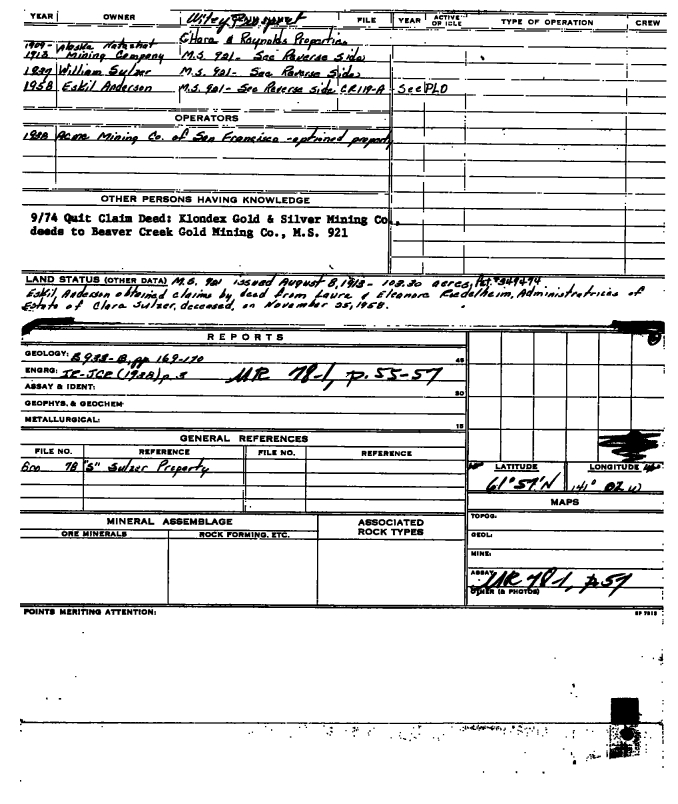 YEAR OWNER Wiley Prospect FILE YEAR ACTIVE OR IDLE TYPE OF OPERATION CREW
O'Hara & Reynolds Properties
1909- Alaska
1913 Mining Company M.S. 921- See Reverse Side
1937 William Sulzer M.S. 921- See Reverse Side
1958 Eskil Anderson M.S. 921- See Reverse side CR119-A See PLO
OPERATORS
1938 Acme Mining Co. of San Francisco -optioned property
OTHER PERSONS HAVING KNOWLEDGE
9/74 Quit Claim Deed: Klondex Gold & Silver Mining Co.,
deeds to Beaver Creek Gold Mining Co., M.S. 921
LAND STATUS (OTHER DATA) M.S. 921 issued August 8, 1913- 103.30 acres, Pat. #349494
Eskil Anderson obtained claims by deed from Laura & Eleanora Roedelheim, Administratrices of
Estate of Clara Sulzer, deceased, on November 25, 1958.
REPORTS
GEOLOGY: B 933-B, pp 169-170 45
ENGRG: IR-JCR (1938) p. 3 MR 78-1, p.55-57
ASSAY & IDENT: 30
GEOPHYS. & GEOCHEM
METALLURGICAL: 15
GENERAL REFERENCES
FILE NO. REFERENCE FILE NO. REFERENCE
78 "S" Sulzer Property
LATITUDE LONGITUDE
61° 57'N 141° 02 W
MAPS
MINERAL ASSEMBLAGE ASSOCIATED ROCK TYPES
ORE MINERALS ROCK FORMING, ETC.
TOPOG.
GEOL:
MINE:
ASSAY: MR 78-1, p.57
OTHER (& PHOTOS)
POINTS MERITING ATTENTION: